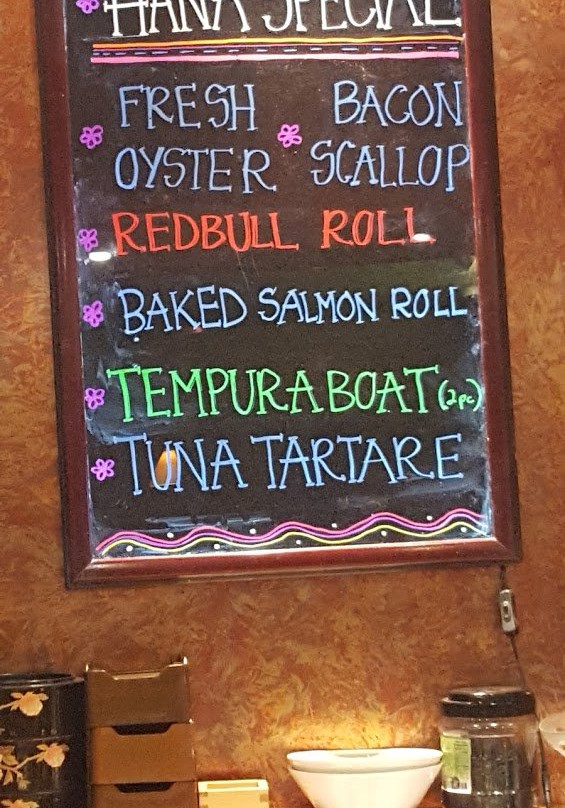 HANA SPECIAL
FRESH BACON
OYSTER SCALLOP
REDBULL ROLL
BAKED SALMON ROLL
TEMPURA BOAT (2pc)
TUNA TARTARE